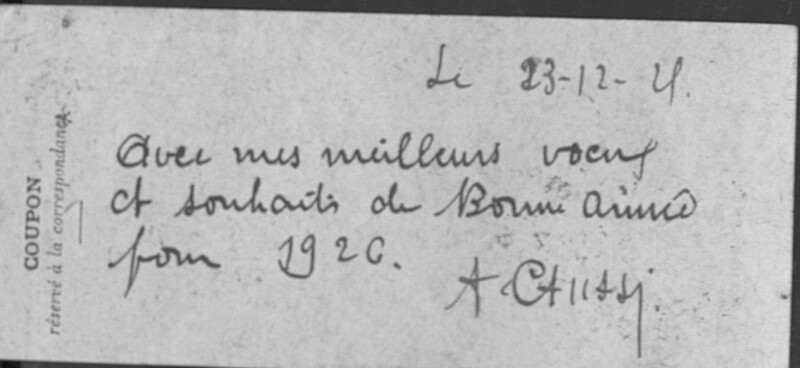 Le 23-12-
Avec mes meilleurs voeux
et souhaits de Bonne année
pour 1926.
COUPON
réservé à la correspondance